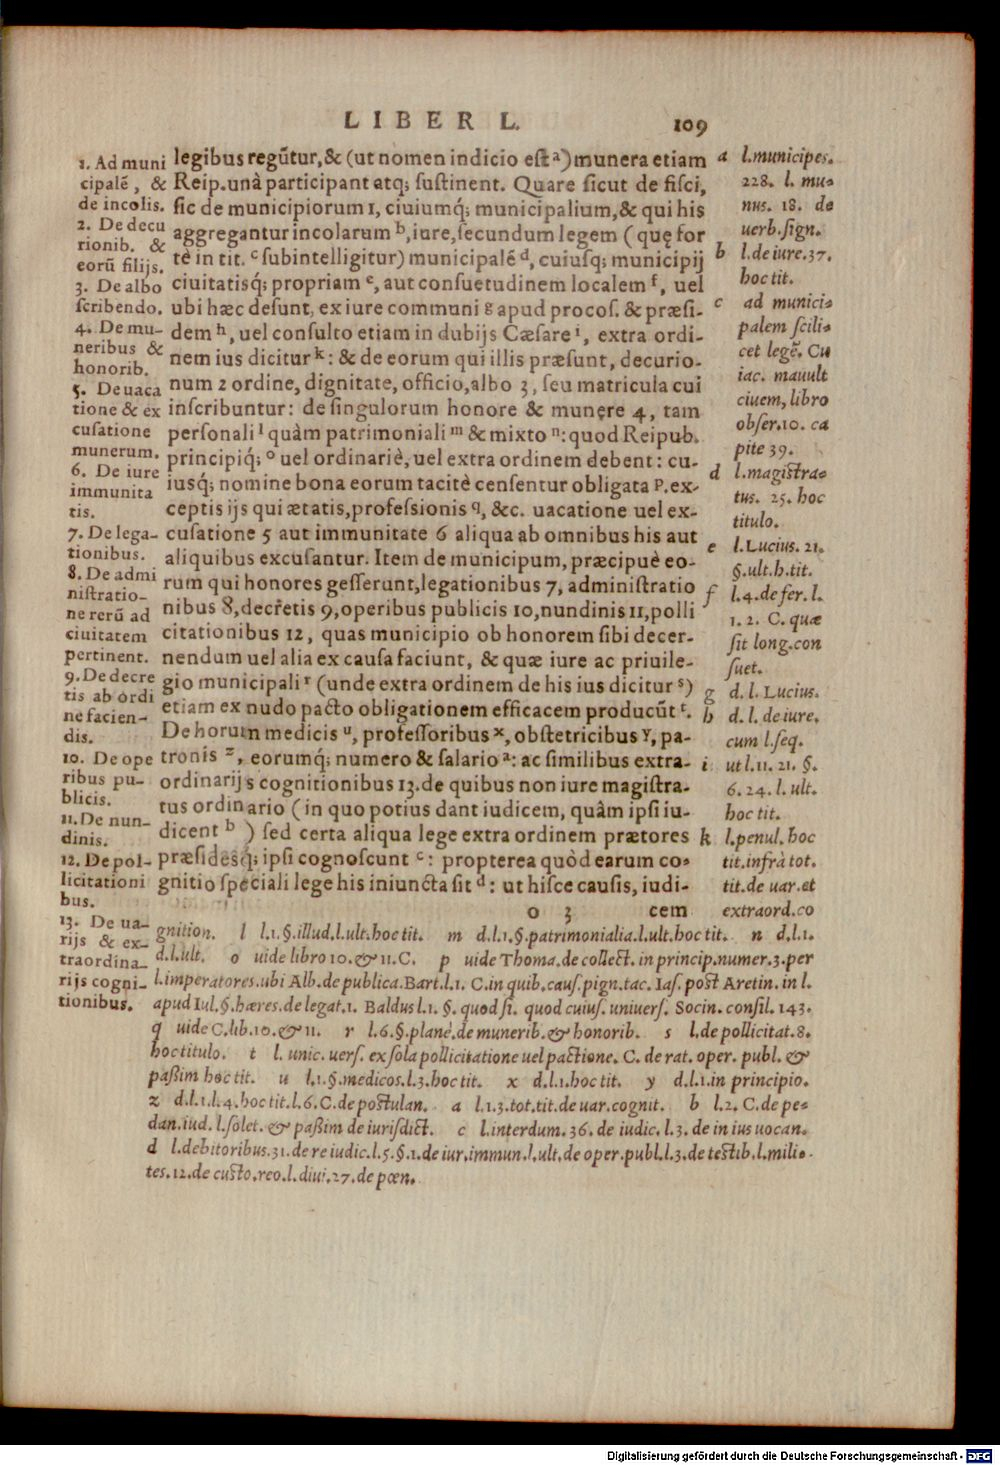 LIBER L.
109
legibus regũtur, & (ut nomen indicio est ᵃ) munera etiam
Reip. unà participant atq; sustinent. Quare sicut de fisci,
sic de municipiorum 1, ciuiumq́; municipalium, & qui his
aggregantur incolarum ᵇ, iure, secundum legem (quę for
tè in tit. ᶜ subintelligitur) municipalẽ ᵈ, cuiusq; municipij
ciuitatisq́; propriam ᵉ, aut consuetudinem localem ᶠ, uel
ubi hæc desunt, ex iure communi ᵍ apud procos. & præsi-
dem ʰ, uel consulto etiam in dubijs Cæsare ⁱ, extra ordi-
nem ius dicitur ᵏ: & de eorum qui illis præsunt, decurio-
num 2 ordine, dignitate, officio, albo 3, seu matricula cui
inscribuntur: de singulorum honore & munęre 4, tam
personali ˡ quàm patrimoniali ᵐ & mixto ⁿ: quod Reipub.
principiq́; ᵒ uel ordinariè, uel extra ordinem debent: cu-
iusq́; nomine bona eorum tacitè censentur obligata ᵖ. ex-
ceptis ijs qui ætatis, professionis q, &c. uacatione uel ex-
cusatione 5 aut immunitate 6 aliqua ab omnibus his aut
aliquibus excusantur. Item de municipum, præcipuè eo-
rum qui honores gesserunt, legationibus 7, administratio
nibus 8, decretis 9, operibus publicis 10, nundinis 11, polli
citationibus 12, quas municipio ob honorem sibi decer-
nendum uel alia ex causa faciunt, & quæ iure ac priuile-
gio municipali ʳ (unde extra ordinem de his ius dicitur ˢ)
etiam ex nudo pacto obligationem efficacem producũt ᵗ.
De horum medicis ᵘ, professoribus ˣ, obstetricibus ʸ, pa-
tronis ᶻ, eorumq́; numero & salario ᵃ: ac similibus extra-
ordinarijs cognitionibus 13. de quibus non iure magistra-
tus ordinario (in quo potius dant iudicem, quâm ipsi iu-
dicent ᵇ) sed certa aliqua lege extra ordinem prætores
præsidesq́; ipsi cognoscunt ᶜ: propterea quòd earum co-
gnitio speciali lege his iniuncta sit ᵈ: ut hisce causis, iudi-
o 3 cem
1. Ad muni
cipalẽ, &
de incolis.
2. De decu
rionib. &
eorũ filijs.
3. De albo
scribendo.
4. De mu-
neribus &
honorib.
5. De uaca
tione & ex
cusatione
munerum.
6. De iure
immunita
tis.
7. De lega-
tionibus.
8. De admi
nistratio-
ne rerũ ad
ciuitatem
pertinent.
9. De decre
tis ab ordi
ne facien-
dis.
10. De ope
ribus pu-
blicis.
11. De nun-
dinis.
12. De pol-
licitationi
bus.
13. De ua-
rijs & ex-
traordina-
rijs cogni-
tionibus.
a l. municipes.
228. l. mu-
nus. 18. de
uerb. sign.
b l. de iure. 37.
hoc tit.
c ad munici-
palem scili-
cet legẽ. Cu
iac. mauult
ciuem, libro
obser. 10. ca
pite 39.
d l. magistra-
tus. 25. hoc
titulo.
e l. Lucius. 21.
§. ult. h. tit.
f l. 4. de fer. l.
1. 2. C. quæ
sit long. con
suet.
g d. l. Lucius.
h d. l. de iure,
cum l. seq.
i ut l. 11. 21. §.
6. 24. l. ult.
hoc tit.
k l. penul. hoc
tit. infrà tot.
tit. de uar. et
extraord. co
gnition. l l. 1. §. illud. l. ult. hoc tit. m d. l. 1. §. patrimonialia. l. ult. hoc tit. n d. l. 1.
d. l. ult. o uide libro 10. & 11. C. p uide Thoma. de collect. in princip. numer. 3. per
l. imperatores. ubi Alb. de publica. Bart. l. 1. C. in quib. caus. pign. tac. Ias. post Aretin. in l.
apud Iul. §. hæres. de legat. 1. Baldus l. 1. §. quod si. quod cuius. uniuers. Socin. consil. 143.
q uide C. lib. 10. & 11. r l. 6. §. planè. de munerib. & honorib. s l. de pollicitat. 8.
hoc titulo. t l. unic. uers. ex sola pollicitatione uel pactione. C. de rat. oper. publ. &
paßim hoc tit. u l. 1. §. medicos. l. 3. hoc tit. x d. l. 1. hoc tit. y d. l. 1. in principio.
z d. l. 1. l. 4. hoc tit. l. 6. C. de postulan. a l. 1. 3. tot. tit. de uar. cognit. b l. 2. C. de pe-
dan. iud. l. solet. & paßim de iurisdict. c l. interdum. 36. de iudic. l. 3. de in ius uocan.
d l. debitoribus. 31. de re iudic. l. 5. §. 1. de iur. immun. l. ult. de oper. publ. l. 3. de testib. l. mili-
tes. 12. de custo. reo. l. diui. 27. de pœn.
Digitalisierung gefördert durch die Deutsche Forschungsgemeinschaft - DFG